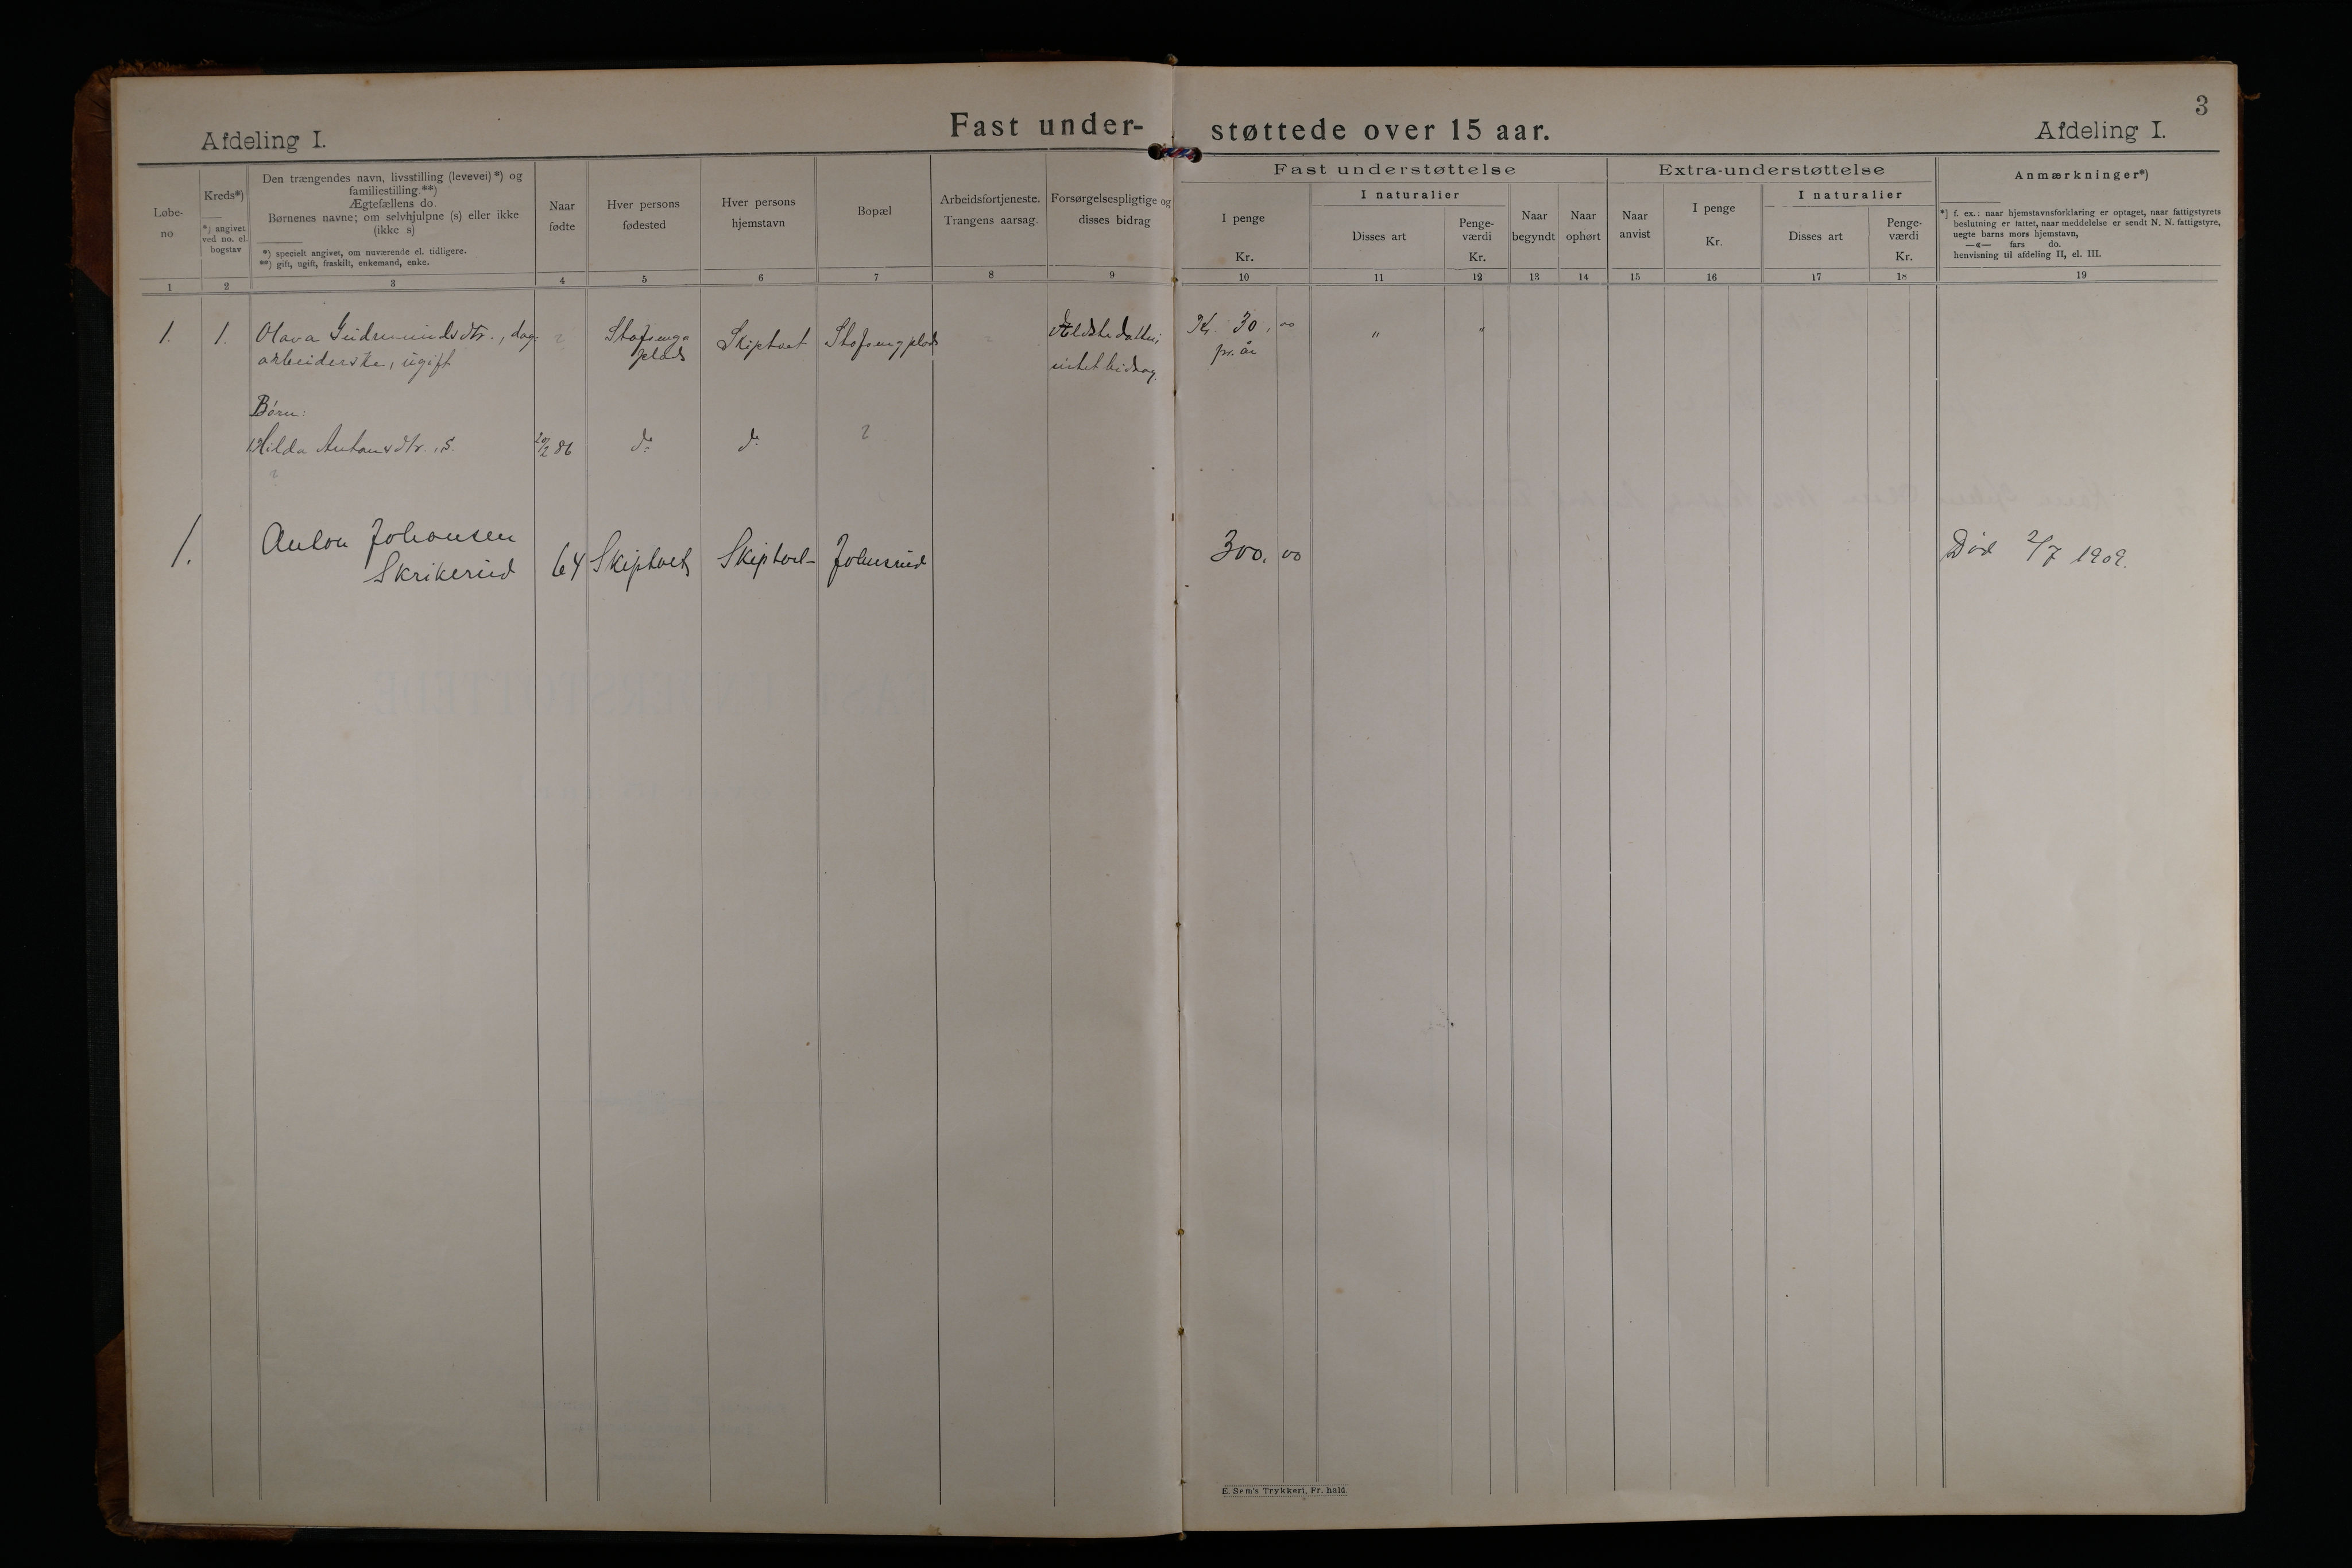 Afdeling I.
Fast under-
støttede over 15 aar.
Afdeling I.
3
Løbe-
no
Kreds*)
*) angivet
ved no. el.
bogstav
Den trængendes navn, livsstilling (levevei)*) og
familiestilling.**)
Ægtefællens do.
Børnenes navne; om selvhjulpne (s) eller ikke
(ikke s)
*) specielt angivet, om nuværende el. tidligere.
**) gift, ugift, fraskilt, enkemand, enke.
Naar
fødte
Hver persons
fødested
Hver persons
hjemstavn
Bopæl
Arbeidsfortjeneste.
Trangens aarsag.
Forsørgelsespligtige og
disses bidrag
Fast understøttelse
I penge
Kr.
I naturalier
Disses art
Penge-
værdi
Kr.
Naar
begyndt
Naar
ophørt
Extra-understøttelse
Naar
anvist
I penge
Kr.
I naturalier
Disses art
Penge-
værdi
Kr.
Anmærkninger*)
*] f. ex.: naar hjemstavnsforklaring er optaget, naar fattigstyrets
beslutning er fattet, naar meddelelse er sendt N. N. fattigstyre,
uegte barns mors hjemstavn,
—«— fars do.
henvisning til afdeling II, el. III.
1 2 3 4 5 6 7 8 9 10 11 12 13 14 15 16 17 18 19
1. 1. Olava Gudmundsdtr., dag- ? Skiptvet Kr. 30,00 " "
arbeiderske, ugift plads intet bidrag. pr. år
Børn:
1) Hilda Antonsdtr., s. 20/12 86 do do ?
?
1. Anton Johansen
Skrikerud 64 Skiptvet Skiptvet Johnsrud 300,00 Død 2/7 1909.
E. Sem's Trykkeri, Fr. hald.